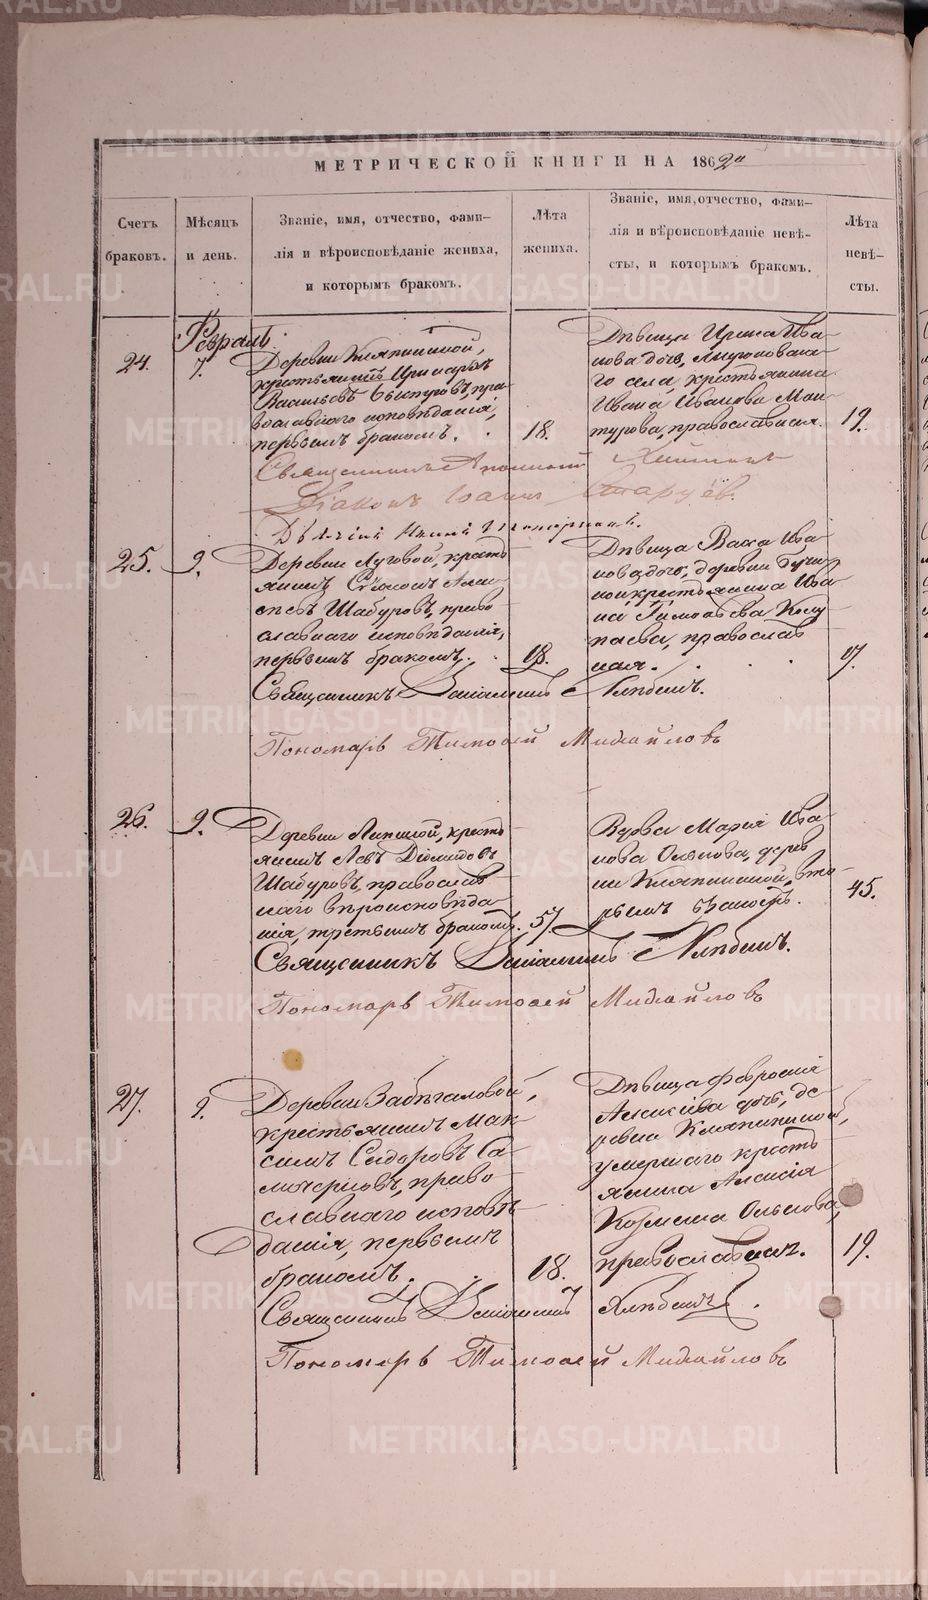 МЕТРИЧЕСКОЙ КНИГИ НА 1862й
Счетъ браковъ.
Мѣсяцъ и день.
Званіе, имя, отчество, фами-
лія и вѣроисповѣданіе жениха,
и которымъ бракомъ.
Лѣта
жениха.
Званіе, имя, отчество, фами-
лія и вѣроисповѣданіе невѣ-
сты, и которымъ бракомъ.
Лѣта
невѣ-
сты.
Февраль
24.
7.
Деревни Кляпининой,
крестьянинъ
Васильевъ пра-
вославнаго исповѣданія,
первымъ бракомъ.
18.
Дѣвица Ирина Ива-
нова дочь,
го села, крестьянина
Ивана Иванова Ман-
турова, православная.
19.
Священникъ
Діаконъ Іоаннъ
25.
9.
Деревни Луговой, кресть
янинъ Симонъ Алек
сѣевъ Шабуровъ, право
славнаго исповѣданія,
первымъ бракомъ.
18.
Дѣвица Васса Ива
нова дочь, деревни
крестьянина Ива
на Тимоѳеева Колу
паева, православ
ная.
17.
Священникъ Веніаминъ Хлѣбинъ.
Пономарь Тимоѳей Михайловъ
26.
9.
Деревни Липиной, кресть
янинъ Левъ Діомидовъ
Шабуровъ, православ
наго вѣроисповѣда
нія, третьимъ бракомъ.
57.
Вдова Марія Ива
нова Ольнова, дерев
ни Кляпининой, вто-
рымъ бракомъ.
45.
Священникъ Веніаминъ Хлѣбинъ.
Пономарь Тимоѳей Михайловъ
27.
9.
Деревни Забѣгаловой,
крестьянинъ Мак-
симъ Сидоровъ Са
мочерновъ, право
славнаго исповѣ
данія, первымъ
бракомъ.
18.
Дѣвица Февронія
Алексіева дочь, де
ревни Кляпининой,
умершаго кресть
янина Алексія
Козмина Ольнова,
православная.
19.
Священникъ Веніаминъ Хлѣбинъ.
Пономарь Тимоѳей Михайловъ
METRIKI.GASO-URAL.RU